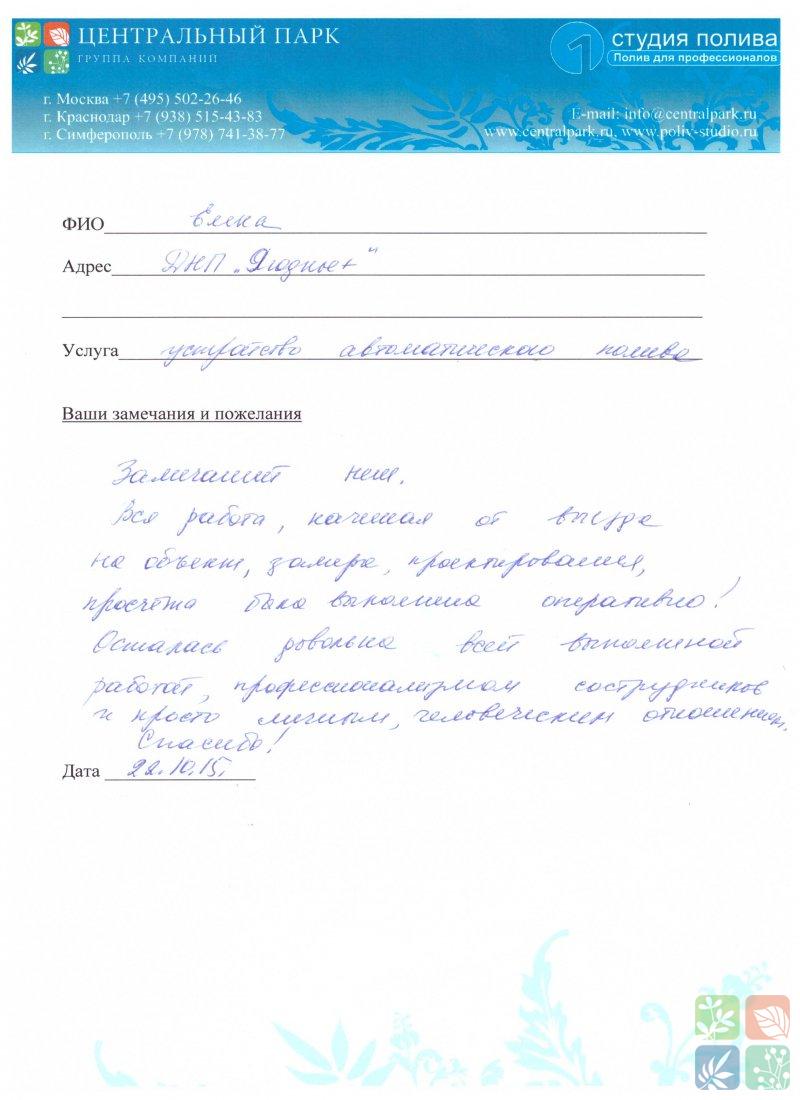 ЦЕНТРАЛЬНЫЙ ПАРК
ГРУППА КОМПАНИЙ
1 студия полива
Полив для профессионалов
г. Москва +7 (495) 502-26-46
г. Краснодар +7 (938) 515-43-83
г. Симферополь +7 (978) 741-38-77
E-mail: info@centralpark.ru
www.centralpark.ru, www.poliv-studio.ru
ФИО Елена
Адрес ДНП
Услуга устройство автоматического полива
Ваши замечания и пожелания
Замечаний нет.
Вся работа, начиная от выезда
на объект, замера, проектирования,
просчёта была выполнена оперативно!
Осталась довольна всей выполненной
работой, профессионализмом сотрудников
и просто личным, человеческим отношением.
Спасибо!
Дата 22.10.15.